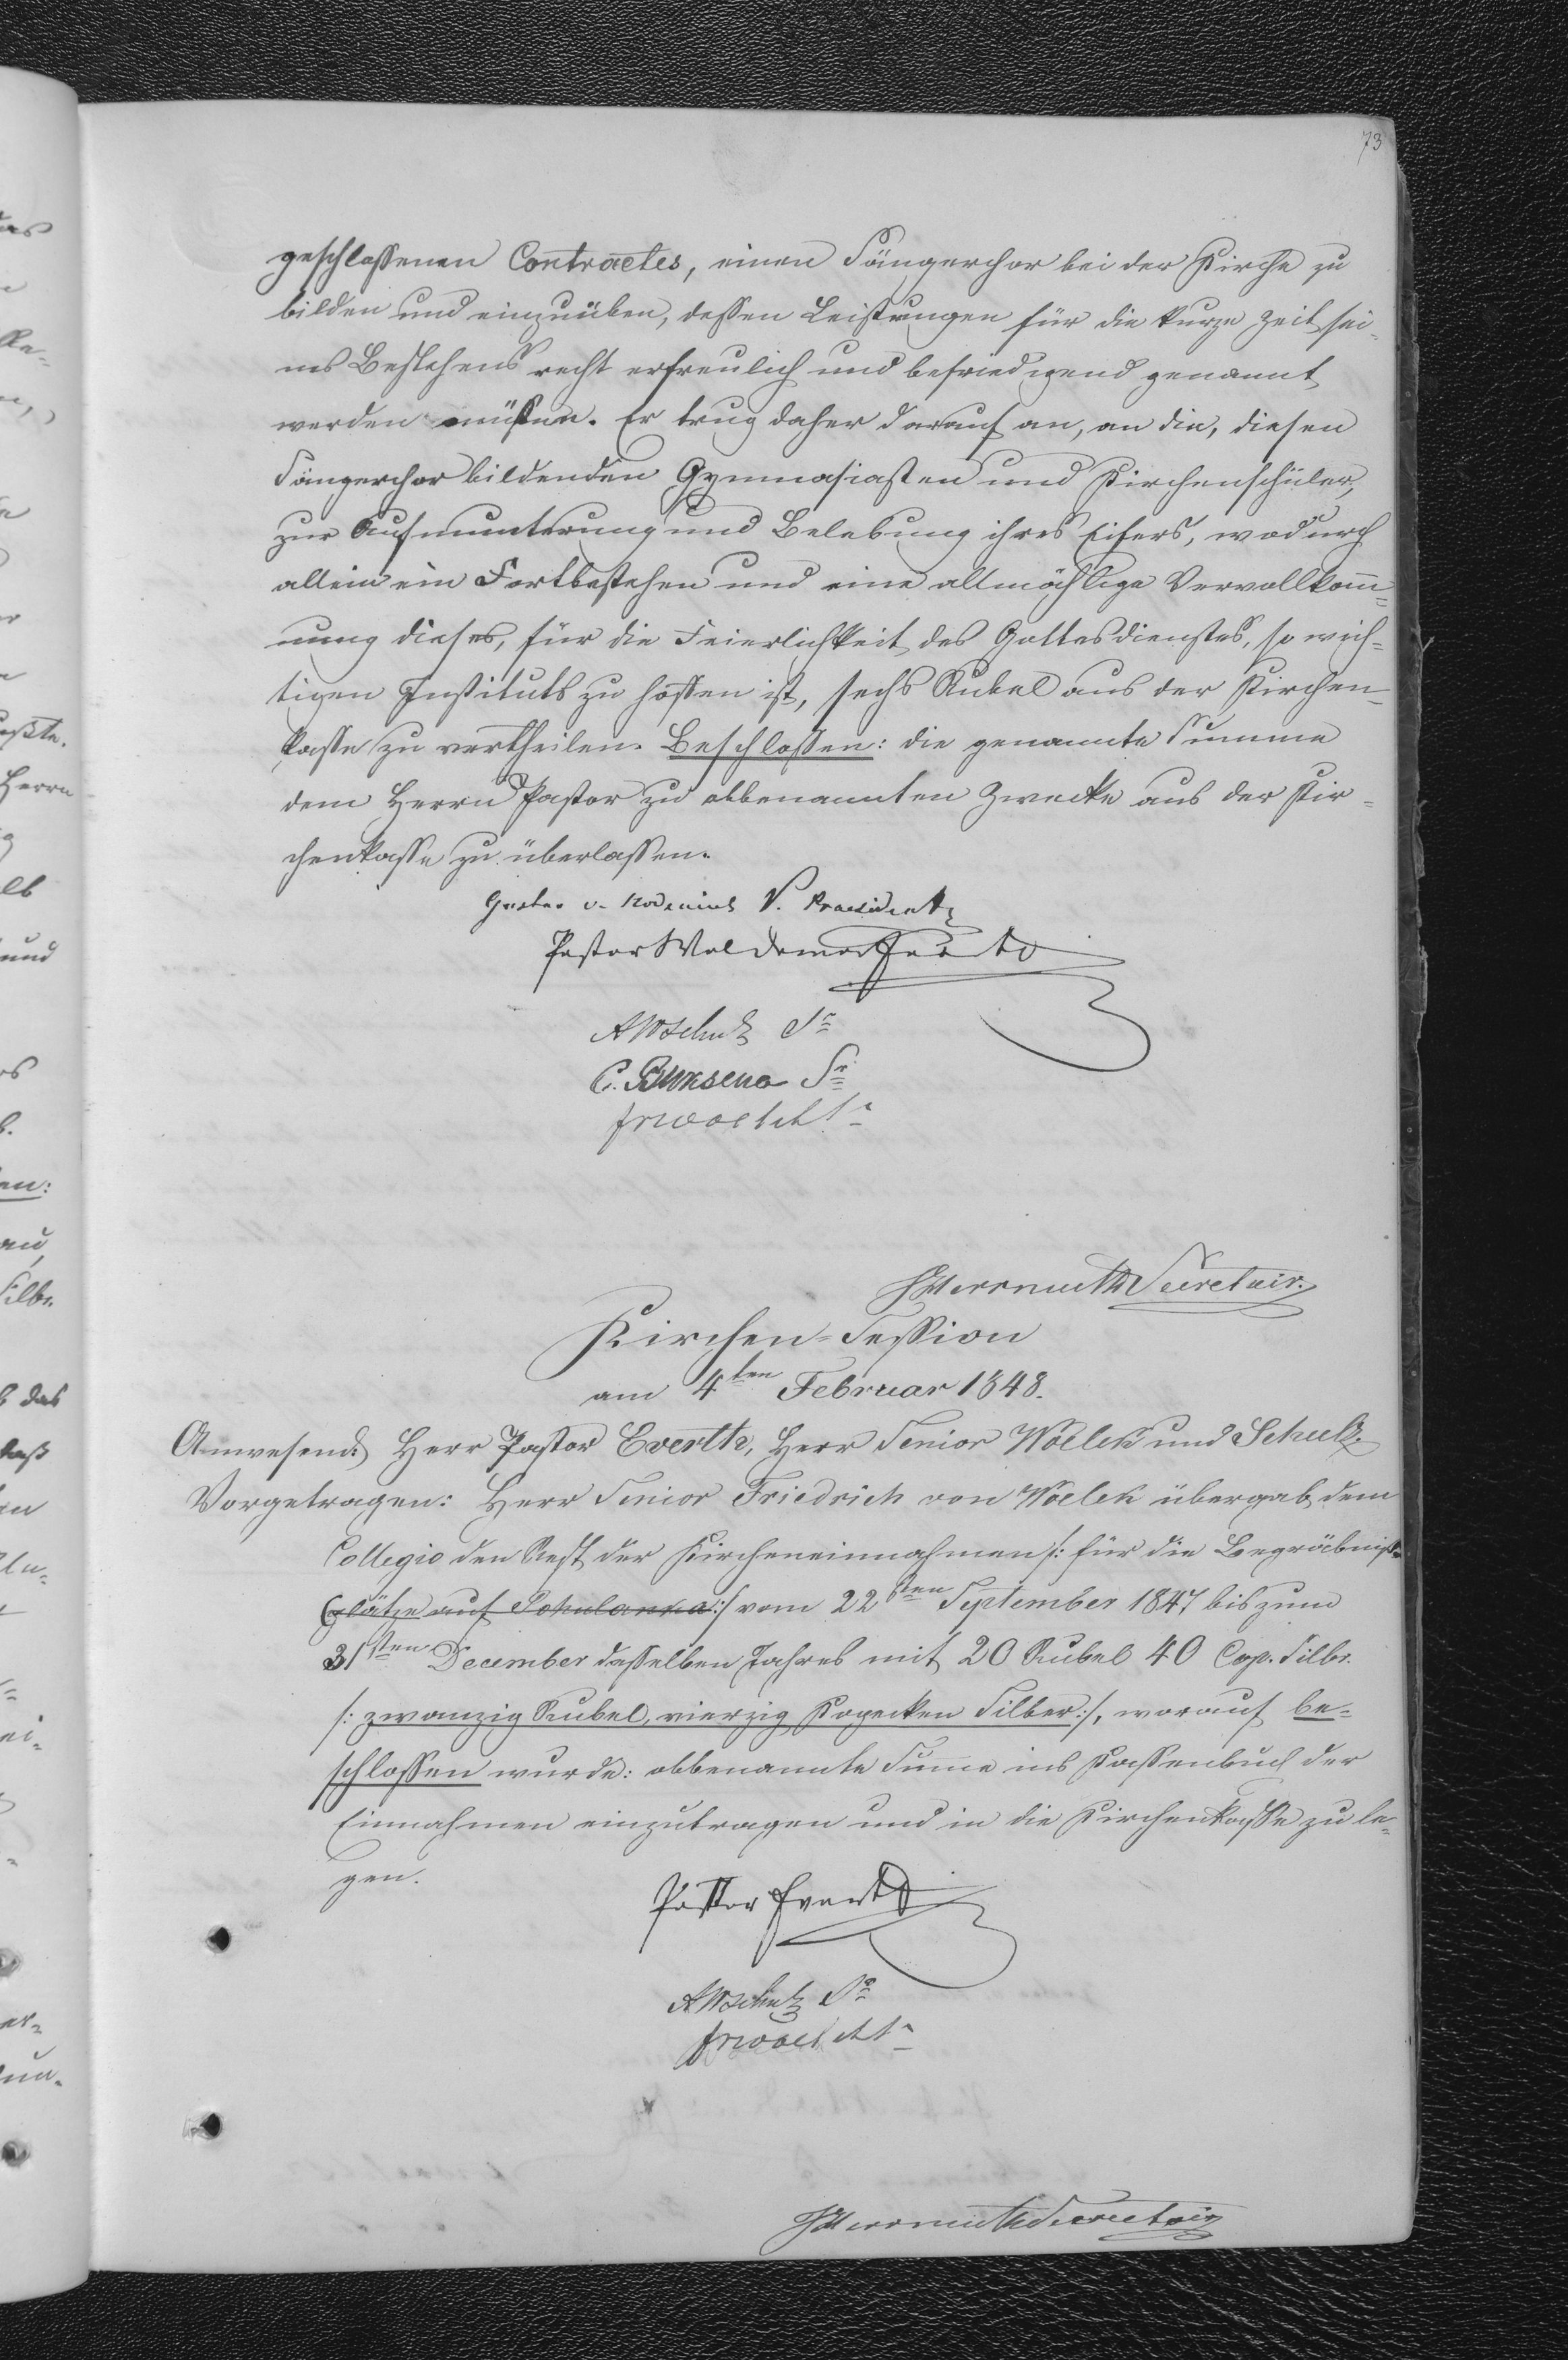 73
geschlossenen Contractes, einen Sängerchor bei der Kirche zu
bilden und einzuüben, dessen Leistungen für die kurze Zeit sei-
nes Bestehens recht erfreulich und befriedigend genannt
werden müssen. Er trug daher darauf an, an die, diesen
Sängerchor bildenden Gymnasiasten und Kirchenschüler,
zur Aufmunterung und Belebung ihres Eifers, wodurch
allein ein Fortbestehen und eine allmählige Vervollkom̄=
nung dieses, für die Feierlichkeit des Gottesdienstes, so wich=
tigen Instituts zu hoffen ist, sechs Rubel aus der Kirchen-
kasse zu vertheilen. Beschlossen: die genannte Summe
dem Herrn Pastor zu obbenannten Zwecke aus der Kir=
chenkasse zu überlassen.
V. Praesident
Pastor Woldemar Everth
AWSchulz Sr
C. Sr
Secretair.
Kirchen=Session
am 4ten Februar 1848.
Anwesend: Herr Pastor Everth, Herr Senior Woelck und Schulz.
Vorgetragen: Herr Senior Friedrich von Woelck übergab dem
Collegio den Rest der Kircheneinnahmen /: für die Begräbniß=
plätze auf Pohulanka :/ vom 22sten September 1847 bis zum
31sten December desselben Jahres mit 20 Rubel 40 Cop. Silbr.
/: zwanzig Rubel, vierzig Kopecken Silber :/, worauf be=
schlossen wurde: obbenannte Sum̄e ins Kassenbuch der
Einnahmen einzutragen und in die Kirchenkasse zu le=
gen.
Pastor Everth
AWSchulz Sr
Secretair